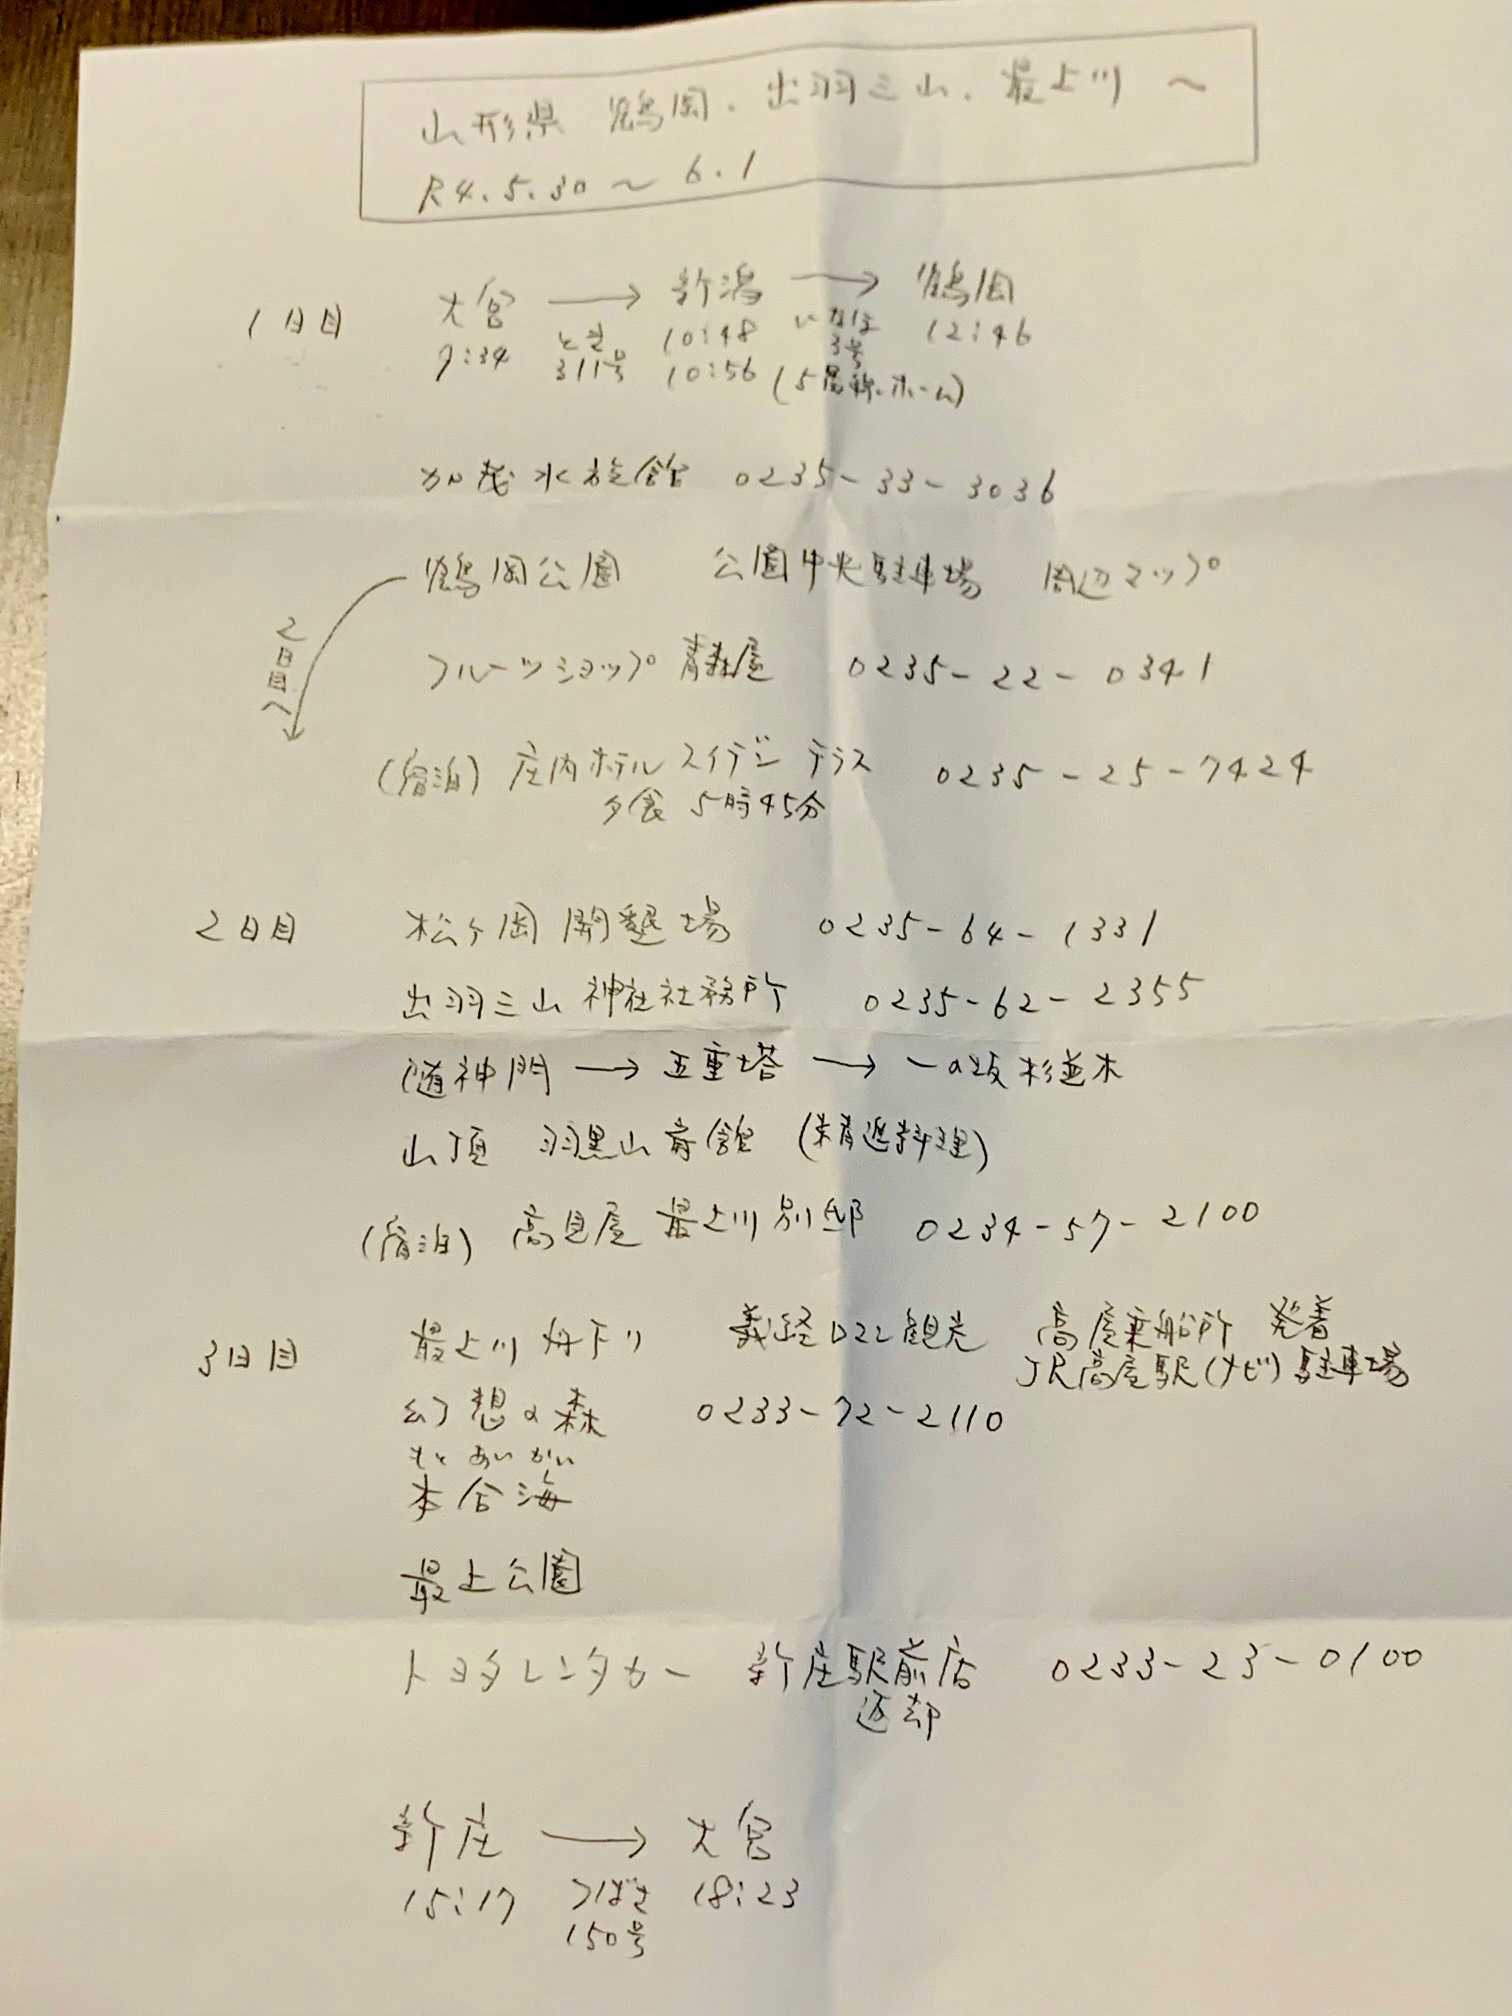 山形県 鶴岡、出羽三山、最上川 〜
R4.5.30〜6.1
1日目 大宮 → 新潟 → 鶴岡
7:34 とき 10:48 いなほ 12:46
311号 10:56 3号 (5番線ホーム)
加茂水族館 0235-33-3036
鶴岡公園 公園中央駐車場 周辺マップ
2日目へ
フルーツショップ 青森屋 0235-22-0341
(宿泊) 庄内ホテル スイデン テラス 0235-25-7424
夕食 5時45分
2日目 松ヶ岡開墾場 0235-64-1331
出羽三山神社社務所 0235-62-2355
随神門 → 五重塔 → 一の坂杉並木
山頂 羽黒山斎館 (精進料理)
(宿泊) 高見屋 最上川別邸 0234-57-2100
3日目 最上川舟下り 義経ロマン観光 高屋乗船所 発着
JR高屋駅(ナビ)駐車場
幻想の森 0233-72-2110
もと あい かい
本合海
最上公園
トヨタレンタカー 新庄駅前店 0233-23-0100
返却
新庄 → 大宮
15:17 つばさ 18:23
150号